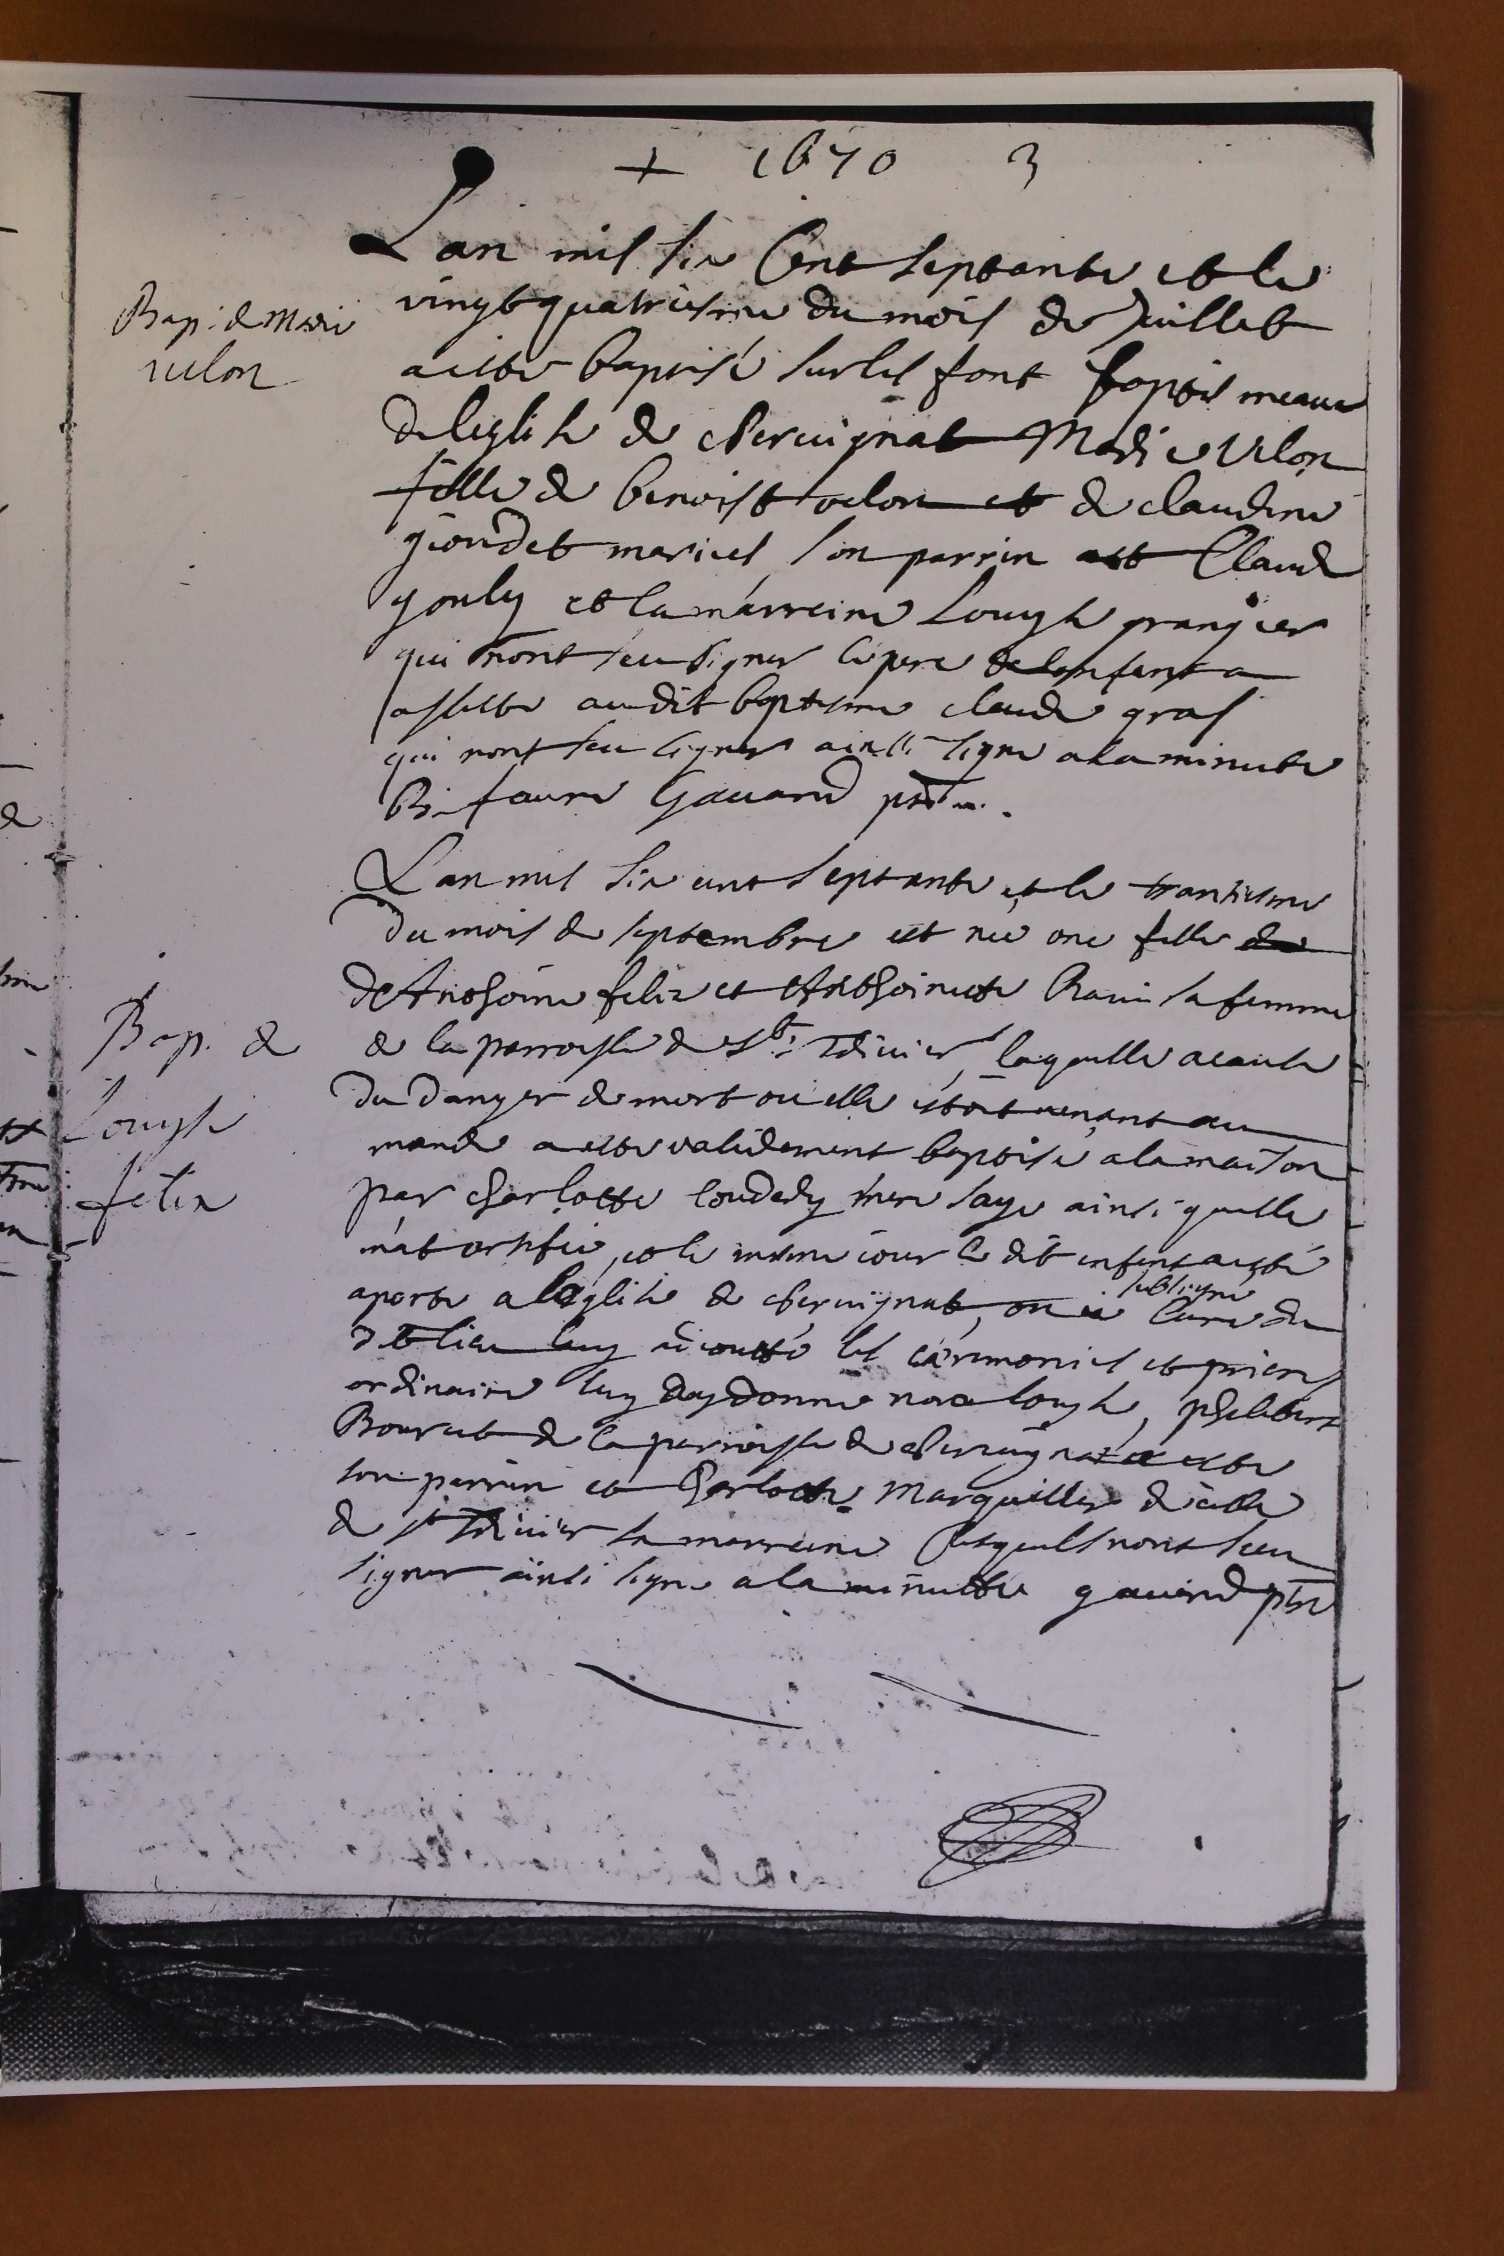 + 1670 3
Lan mil six Cent septante et le
vingtquatriesme du mois de Juillet
a este baptisé sur les font baptis meaux
de leglise de chervignat Marie velon
fille de benoist velon et de claudine
giondet mariés, son parrin est Claude
gonly et la marreine Louyse grangier
qui nont seu signer le pere de lenfant a
assisté audit baptesme claude gras
qui nont seu signer ainssi signe a la minute
B. faure Gavand ptre.
Bap. de Marie
velon
Lan mil six cent septante et le trantiesme
du mois de septembre est neé une fille de
de Anthoine felix et Anthoinette Ravin sa femme
de la parroisse de st. Trivier, laquelle a cause
du danger de mort ou elle estoit venant au
monde a esté validement baptisé a la maison
par charlotte loudedy mere sage ainsi quelle
m'at certifié, et le mesme jour le dit enfent a esté
aporté a leglise de chervignat, on ie soubsigné Curé du
dit lieu luy ai aioutté les cérémonies et prieres
ordinaire luy ay donné nom louyse, philibert
Bouret de la parroisse de chervignat a esté
son parrin et charlotte Marquiller de celle
de st Trivier sa marreine lesquels nont seu
signer ainsi signe a la minutte gavand ptre
Bap. de
Louyse
felix